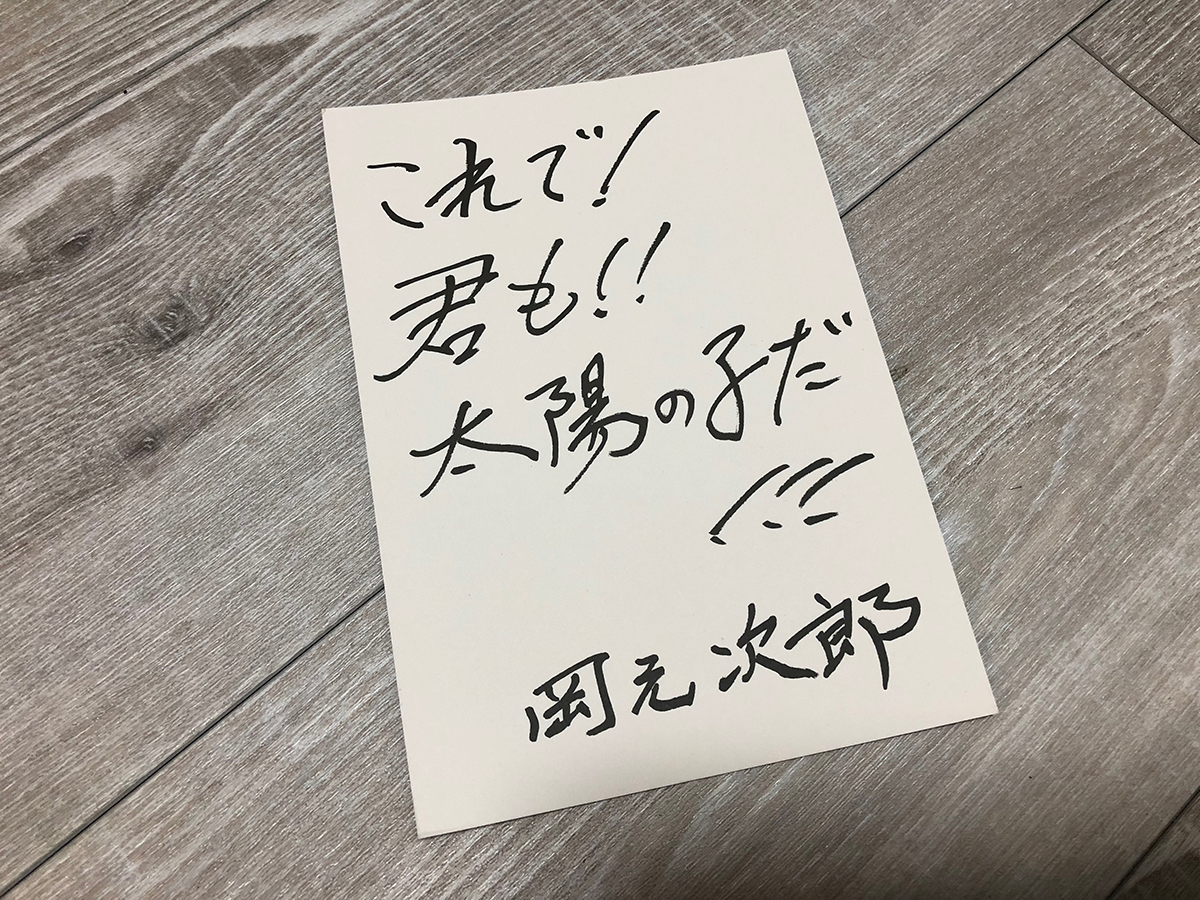 これで!
君も!!
太陽の子だ
!!!
岡元次郎